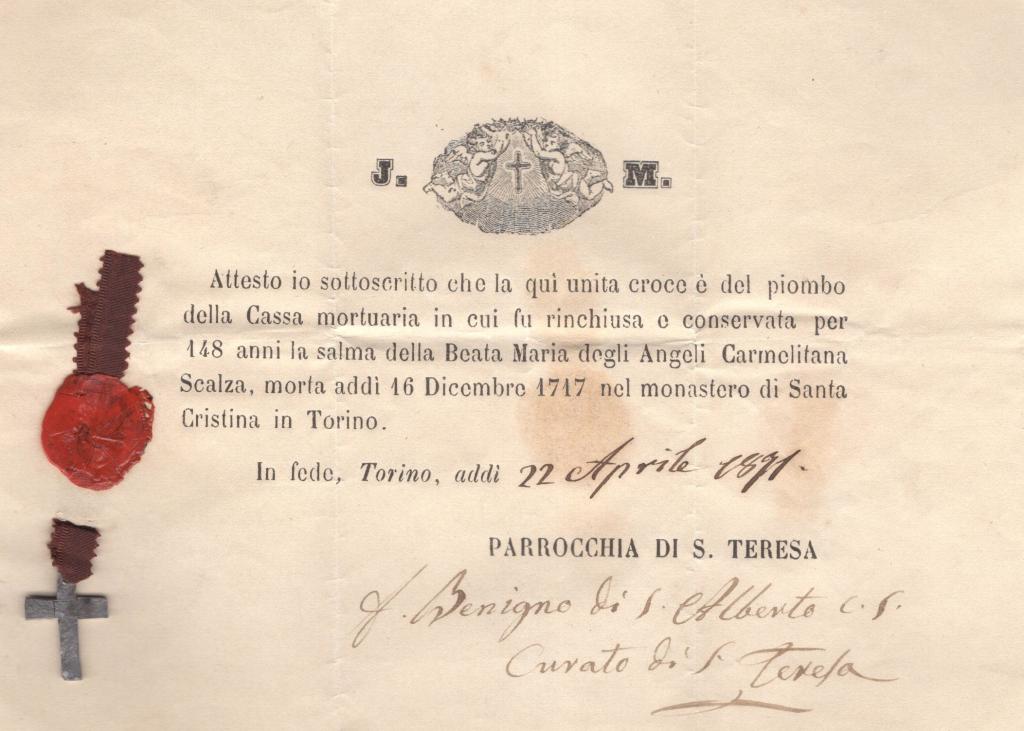 J. M.
Attesto io sottoscritto che la quì unita croce è del piombo
della Cassa mortuaria in cui fu rinchiusa e conservata per
148 anni la salma della Beata Maria degli Angeli Carmelitana
Scalza, morta addì 16 Dicembre 1717 nel monastero di Santa
Cristina in Torino.
In fede, Torino, addì 22 Aprile 1891.
PARROCCHIA DI S. TERESA
f. Benigno di S. Alberto C. S.
Curato di S. Teresa